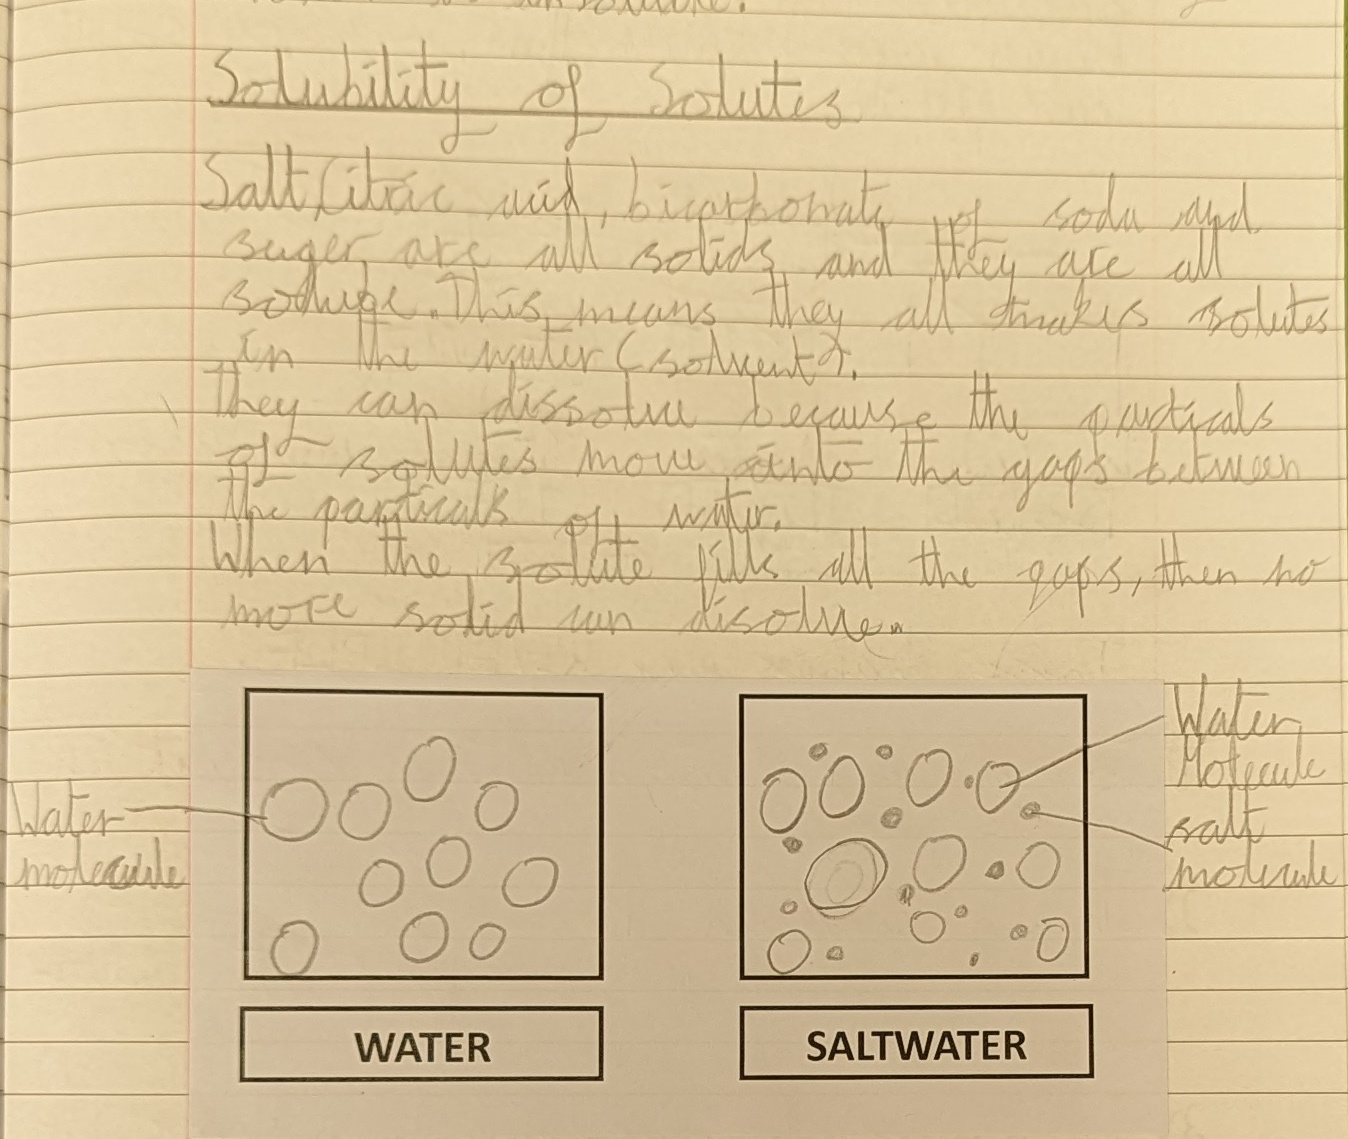 Solubility of Solutes
Salt, Citric acid, bicarbonate of soda and
suger are all solids and they are all
soluble. This means they all makes solutes
in the water (solvent).
They can dissolve because the particals
of solutes move into the gaps between
the particals of water.
When the solute fills all the gaps, then no
more solid can disolve.
Water
molecule
Water
Molecule
salt
molecule
WATER
SALTWATER